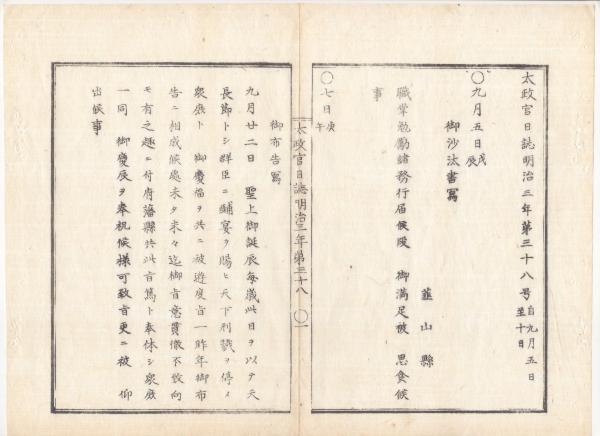 太政官日誌明治三年第三十八号 自九月五日 至十日
〇九月五日 戊辰
御沙汰書寫
韮山縣
職業勉励諸務行届候段 御満足被 思食候
事
〇七日 庚午
太政官日誌明治三年第三十八 〇一
御布告寫
九月廿二日 聖上御誕辰毎歳此日ヲ以テ天
長節トシ群臣ニ酺宴ヲ賜ヒ天下刑戮ヲ停メ
衆庶ト 御慶福ヲ共ニ被遊度旨一昨年御布
告ニ相成候處未タ末々迄御旨意貫徹不致向
モ有之趣ニ付府藩縣共此旨篤ト奉体シ衆庶
一同 御慶辰ヲ奉祝候様可致旨更ニ被 仰
出候事